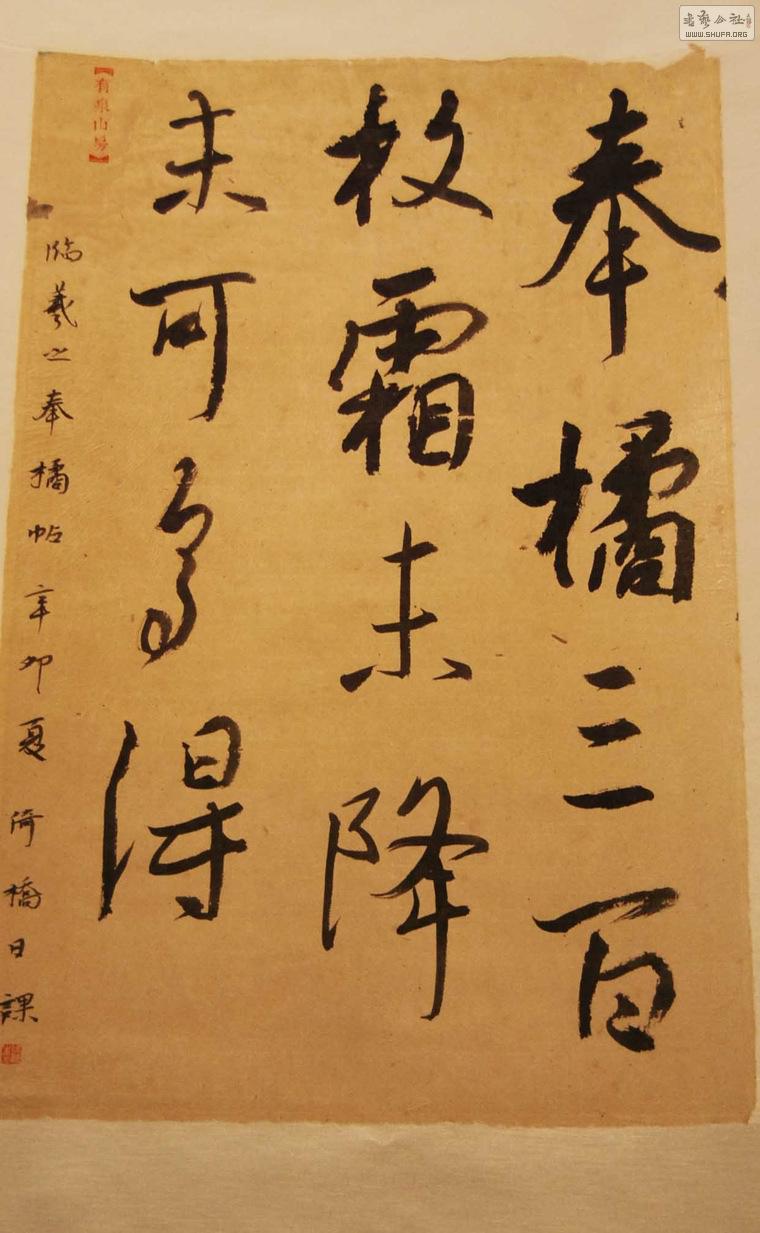 奉橘三百
枚霜未降
未可多得
臨羲之奉橘帖辛卯夏倚橋日課
書藝公社
WWW.SHUFA.ORG